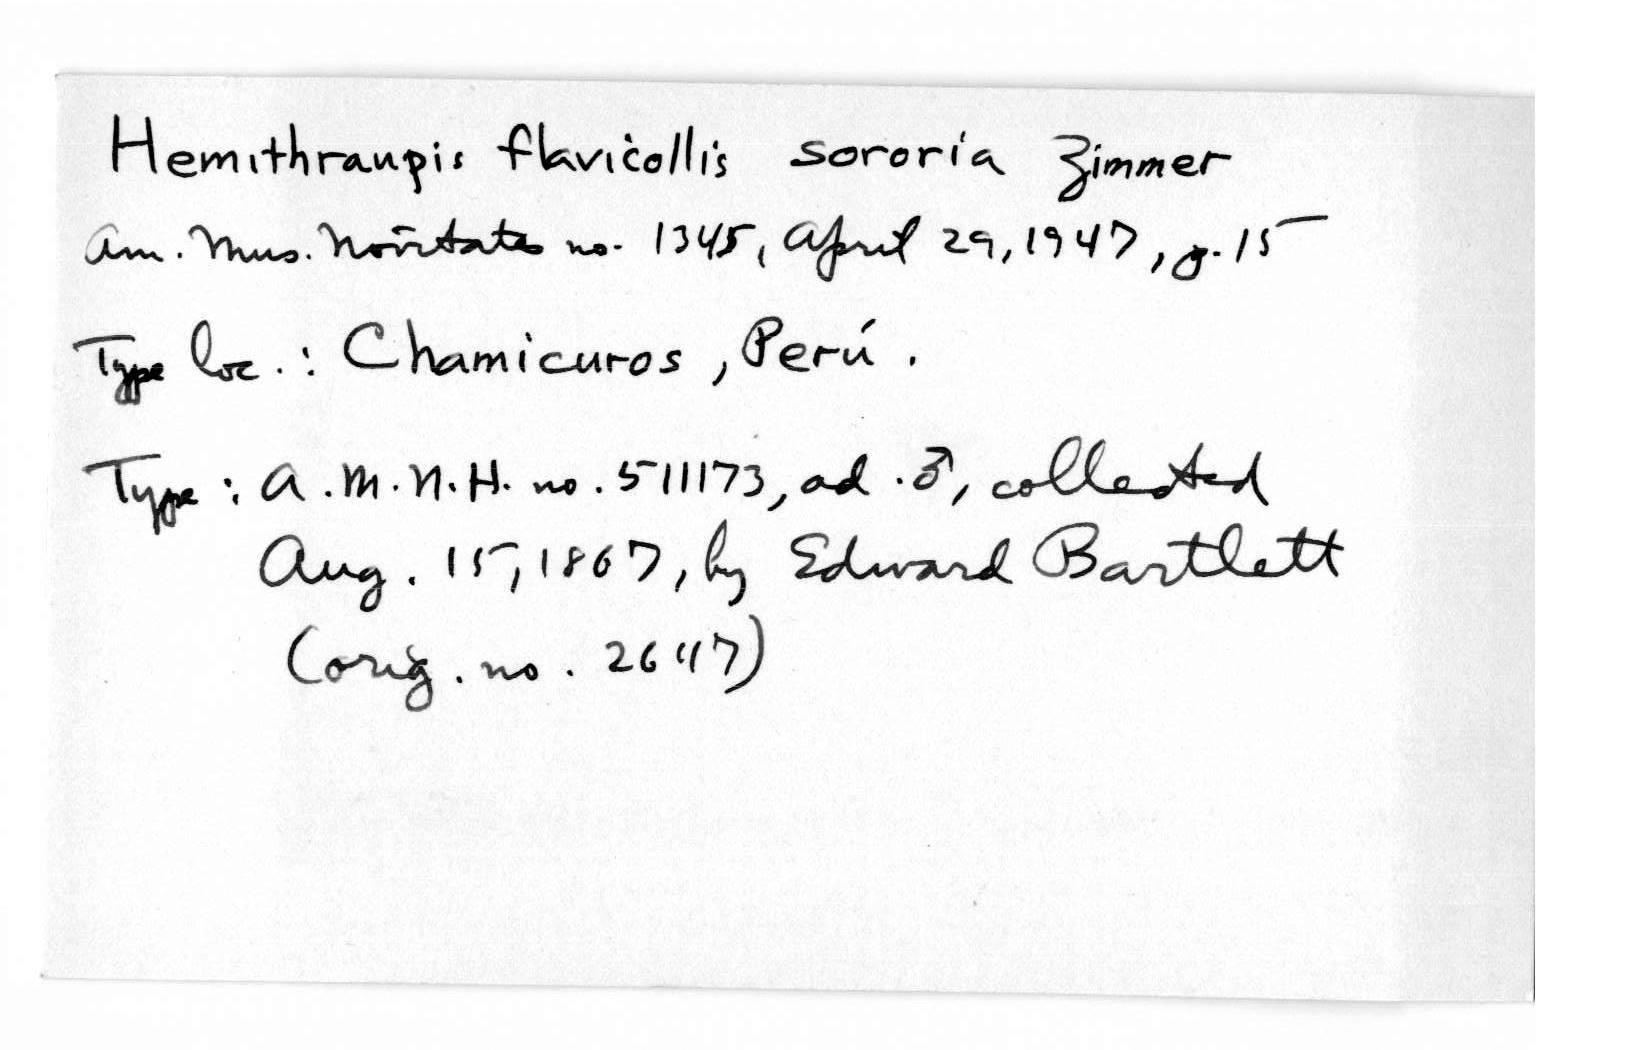 Hemithraupis flavicollis sororia Zimmer
Am. Mus. Novitates no. 1345, April 29, 1947, p. 15
Type loc.: Chamicuros, Perú.
Type: A.M.N.H. no. 511173, ad. ♂, collected
Aug. 15, 1867, by Edward Bartlett
(orig. no. 2647)